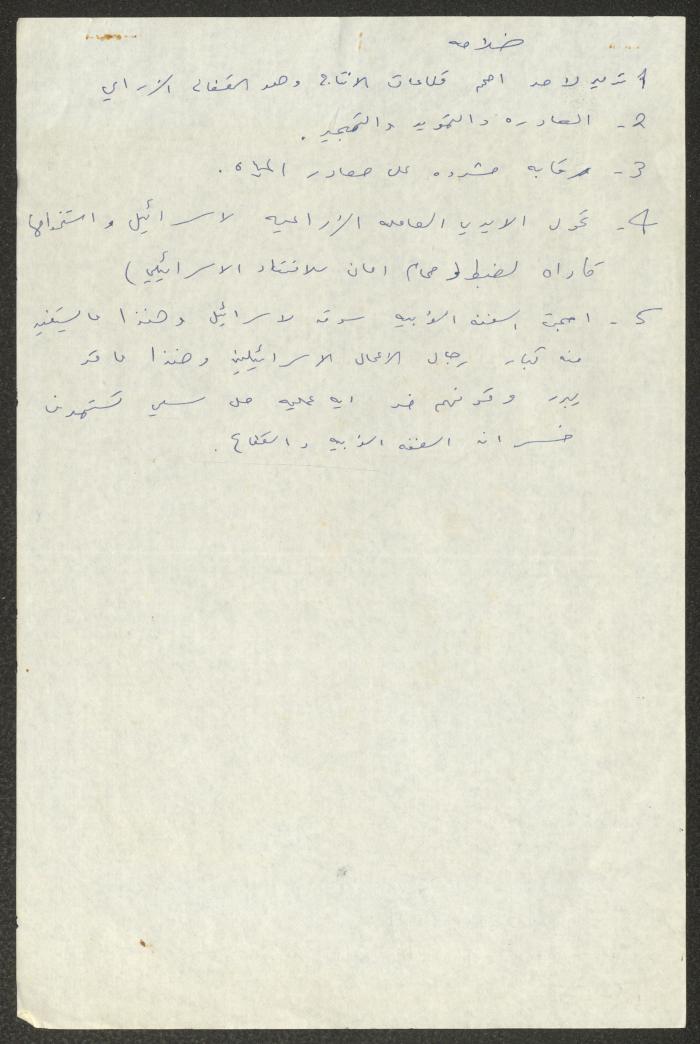 خلاصه
1 تدمير لاحد اهم قطاعات الانتاج وهو القطاع الزراعي
2- المصادره والتهويد والتهجير .
3- رقابه مشدده على مصادر المياه .
4- تحول الايدي العامله الزراعيه لاسرائيل واستخدامها
كاداه لضبط (صمام امان للاقتصاد الاسرائيلي)
5- اصبحت الضفه الغربيه سوقه لاسرائيل وهذا ما يستفيد
منه كبار رجال الاعمال الاسرائيلين وهذا ما قد
يبرر وقوفهم ضد ايه عمليه حل سلمي تستهدف
خسران الضفه الغربيه والقطاع .